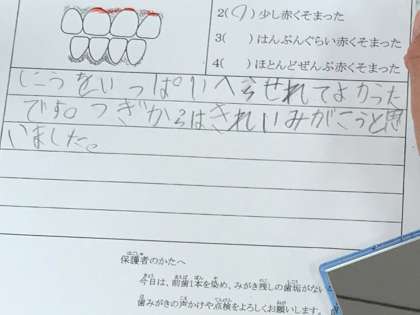 2(○)少し赤くそまった
3(　)はんぶんぐらい赤くそまった
4(　)ほとんどぜんぶ赤くそまった
しこうをいっぱいへらせれてよかった
です。つぎからはきれいみがこうと思
いました。
保護者のかたへ
今日は、前歯1本を染め、みがき残しの歯垢がない
歯みがきの声かけや点検をよろしくお願いします。